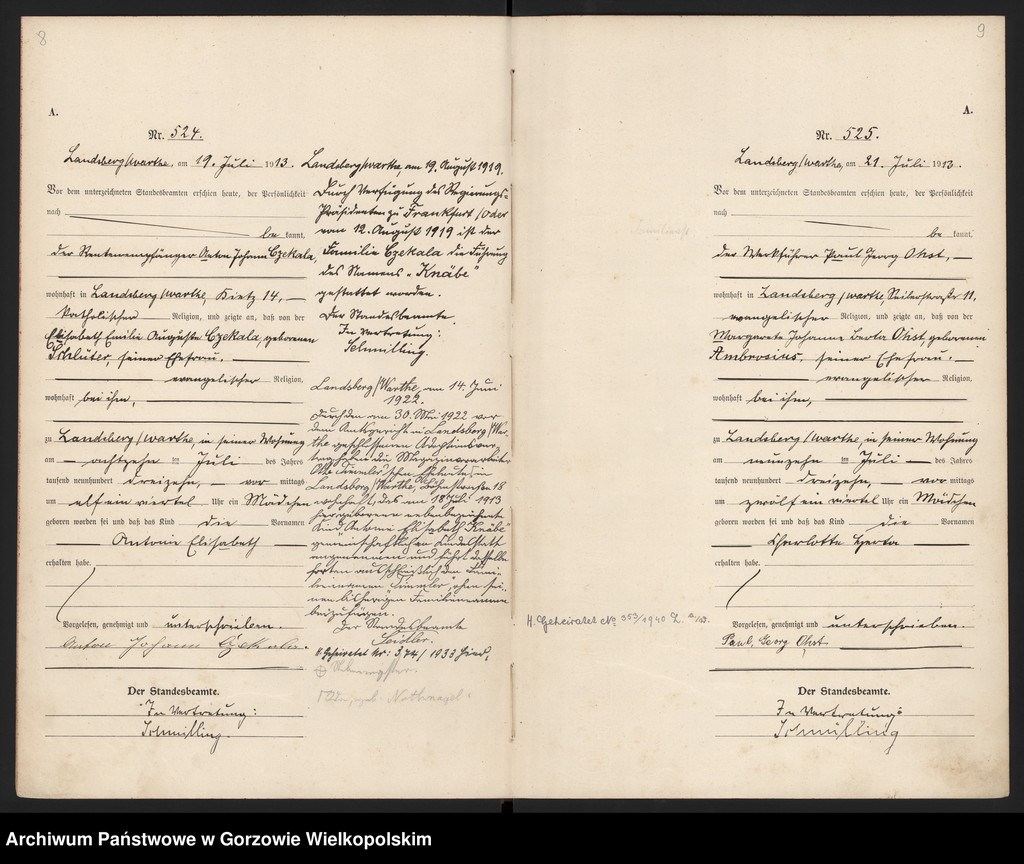 8
A.
Nr. 524.
Landsberg/Warthe, am 19. Juli 1913.
Vor dem unterzeichneten Standesbeamten erschien heute, der Persönlichkeit
nach
be kannt,
der Rentenempfänger Anton Johann Czekala,
wohnhaft in Landsberg/Warthe, Kietz 14,
katholischer Religion, und zeigte an, daß von der
Elisabeth Emilie Auguste Czekala, geborenen
Schlüter, seiner Ehefrau,
evangelischer Religion,
wohnhaft bei ihm,
zu Landsberg/Warthe, in seiner Wohnung
am achtzehn ten Juli des Jahres
tausend neunhundert dreizehn, vor mittags
um elf ein viertel Uhr ein Mädchen
geboren worden sei und daß das Kind die Vornamen
Antonie Elisabeth
erhalten habe.
Vorgelesen, genehmigt und unterschrieben.
Anton Johann Czekala.
Der Standesbeamte.
In Vertretung:
Schmilling.
Landsberg/Warthe, am 19. August 1919.
Durch Verfügung des Regierungs-
Präsidenten zu Frankfurt/Oder
vom 12. August 1919 ist der
Familie Czekala die Führung
des Namens "Knäbe"
gestattet worden.
Der Standesbeamte.
In Vertretung:
Schmilling.
Landsberg/Warthe, am 14. Juni
1922.
Durch den am 30. Mai 1922 vor
dem Amtsgericht in Landsberg/War-
the geschlossenen Adoptionsver-
trag haben die Magazinarbeiter
Otto Tümler'schen Eheleute, in
Landsberg/Warthe, 18
wohnhaft, das am 18. Juli 1913
hier geborene nebenbezeichnete
Kind Antonie Elisabeth "Knäbe"
gemeinschaftlich an Kindesstatt
angenommen und führt dasselbe
fortan ausschließlich den Fami-
liennamen "Tümler", ohne sei-
nen bisherigen Familiennamen
beizufügen.
Der Standesbeamte
Geheiratet Nr: 374/1933 hier,
9
A.
Nr. 525.
Landsberg/Warthe, am 21. Juli 1913.
Vor dem unterzeichneten Standesbeamten erschien heute, der Persönlichkeit
nach
be kannt,
der Werkführer Paul Georg Obst,
wohnhaft in Landsberg/Warthe, Seilerstraße 11,
evangelischer Religion, und zeigte an, daß von der
Margarete Johanna Berta Obst, geborenen
Ambrosius, seiner Ehefrau,
evangelischer Religion,
wohnhaft bei ihm,
zu Landsberg/Warthe, in seiner Wohnung
am neunzehn ten Juli des Jahres
tausend neunhundert dreizehn, vor mittags
um zwölf ein viertel Uhr ein Mädchen
geboren worden sei und daß das Kind die Vornamen
Charlotte Herta
erhalten habe.
H. Geheiratet No 353/1940 L.
Vorgelesen, genehmigt und unterschrieben.
Paul, Georg Obst
Der Standesbeamte.
In Vertretung:
Schmilling
Archiwum Państwowe w Gorzowie Wielkopolskim